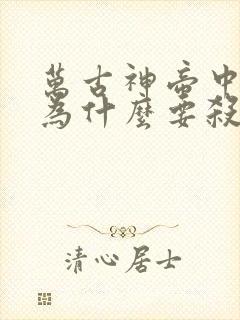 萬古神帝中
為什麼要殺
清心居士